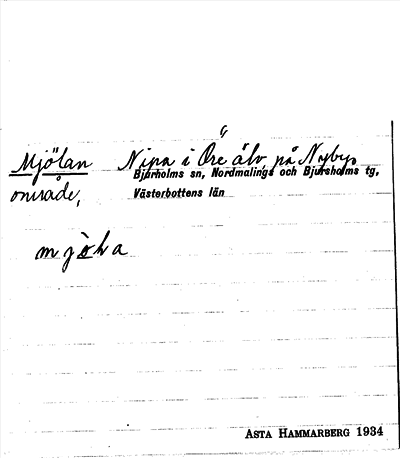 Mjölan Nipa i Öre älv på Nyby,
Bjurholms sn, Nordmalings och Bjurholms tg,
område, Västerbottens län
Asta Hammarberg 1934